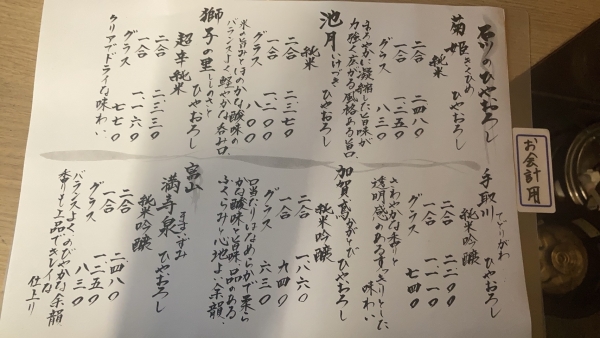 石川のひやおろし
菊姫 きくひめ ひやおろし
純米
二合 二四八〇
一合 一二五〇
グラス 八三〇
まろやかに凝縮した旨味が
力強く広がる風格ある旨口
池月 いけづき ひやおろし
純米
二合 二三七〇
一合
グラス 八〇〇
米の旨みとほのかな酸味の
バランスよく軽やかな呑み口
獅子の里 ししのさと
超辛純米 ひやおろし
二合 二二三〇
一合 一一六〇
グラス 七七〇
クリアでドライな味わい
手取川 てどりがわ
ひやおろし
純米吟醸
二合 二二〇〇
一合 一一一〇
グラス 七四〇
さわやかな香りと
透明感のあるすっきりとした
味わい
加賀鳶 かがとび ひやおろし
純米吟醸
二合 一八六〇
一合 九四〇
グラス 六三〇
口当たりはなめらかで柔ら
かな酸味と旨味、品のある
ふくらみと心地よい余韻
富山
満寿泉 ますいずみ ひやおろし
純米吟醸
二合 二四八〇
一合 一二五〇
グラス 八三〇
バランスよくのびやかな余韻
香りも上品でキレイな
仕上り
お会計用